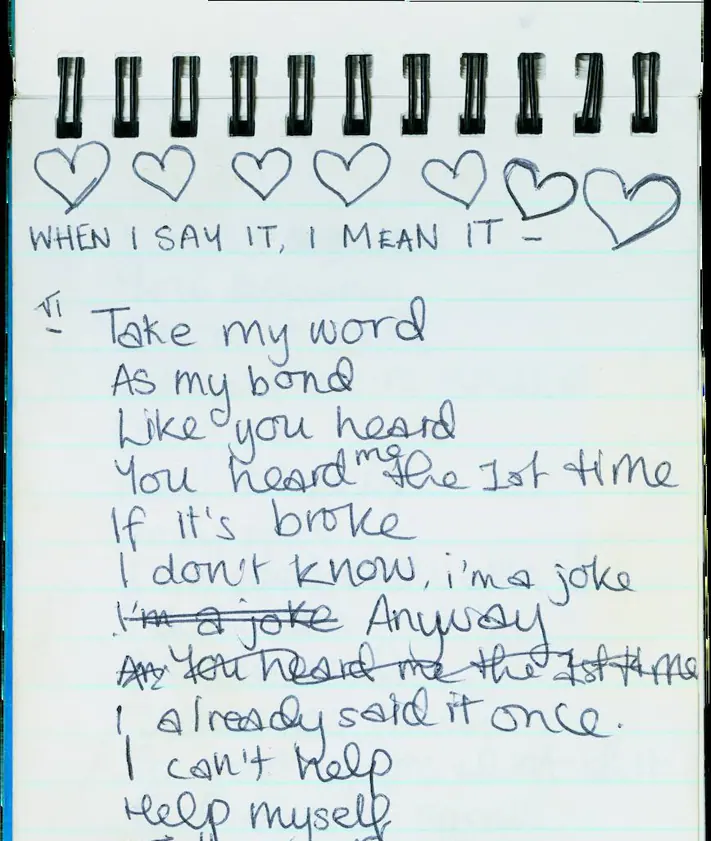 WHEN I SAY IT, I MEAN IT –
V1 Take my word
As my bond
Like you heard
You heard me the 1st time
If it's broke
I don't know, i'm a joke
I'm a joke Anyway
You heard me the 1st time
I already said it once.
I can't help
Help myself